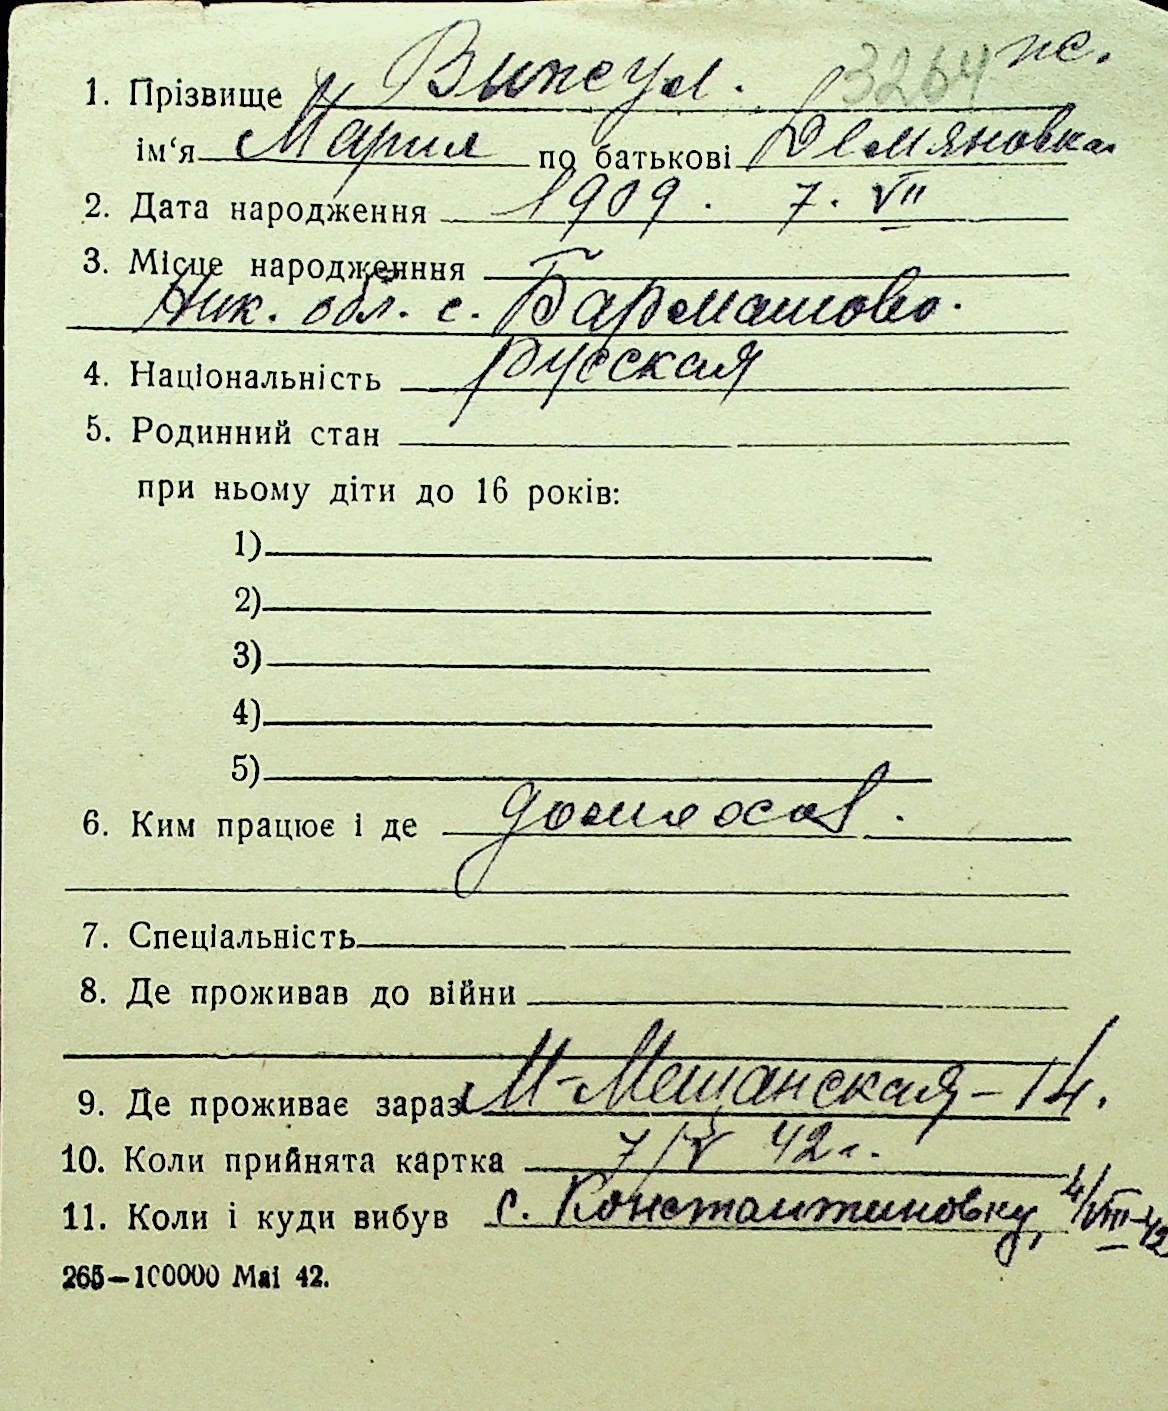 3264 пс.
1. Прізвище Вижсул.
ім‘я Мария по батькові Демяновна
2. Дата народження 1909. 7. VII
3. Місце народженння
Ник. обл. с. Бармашово.
4. Національність русская
5. Родинний стан
при ньому діти до 16 років:
1)
2)
3)
4)
5)
6. Ким працює і де домохоз.
7. Спеціальність
8. Де проживав до війни
9. Де проживає зараз М-Мещанская-14.
10. Коли прийнята картка 7/V 42 г.
11. Коли і куди вибув с. Константиновку, 4/VIII-42
265—100000 Маі 42.